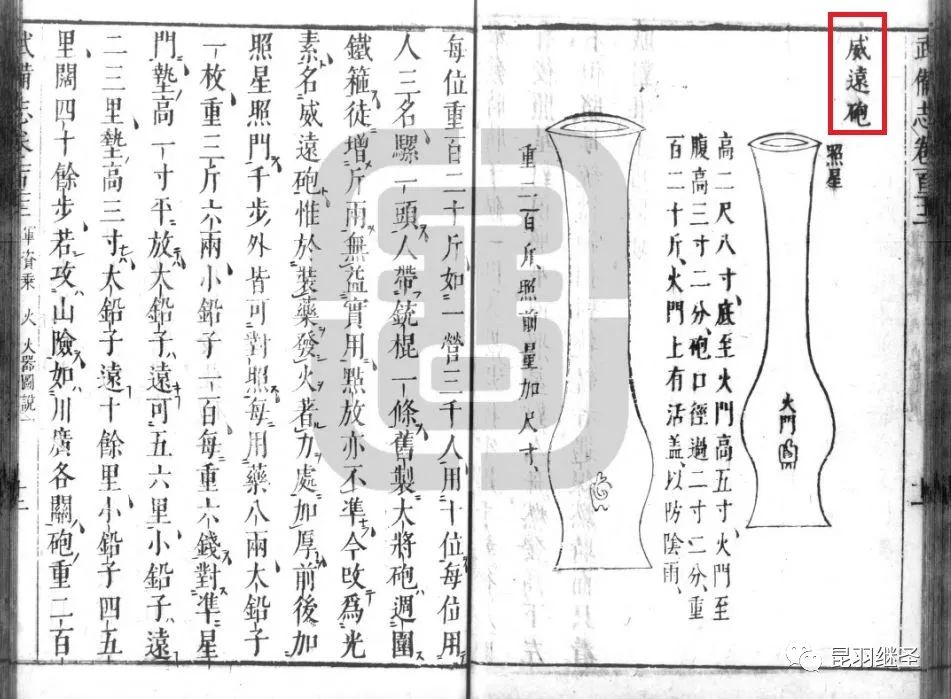 武備志卷百三
威遠砲
照星
火門
高二尺八寸、底至火門高五寸、火門至
腹高三寸二分、砲口徑過二寸二分、重
百二十斤、火門上有活盖、以防陰雨、
重二百斤、照前量加尺寸、
每位重百二十斤如一營三千人用十位每位用
人三名騾一頭人帶銃棍一條舊製大將砲週圍
鐵箍徒增斤兩無益實用點放亦不準今改爲光
素名威遠砲惟於裝藥發火著力處加厚前後加
照星照門千步外皆可對照每用藥八兩大鉛子
一枚重三斤六兩小鉛子一百每重六錢對準星
門墊高一寸平放大鉛子遠可五六里小鉛子遠
二三里墊高三寸大鉛子遠十餘里小鉛子四五
里闊四十餘步若攻山險如川廣各關砲重二百
武備志卷一百三
軍資乗 火 火器圖說一
十二
昆羽继圣